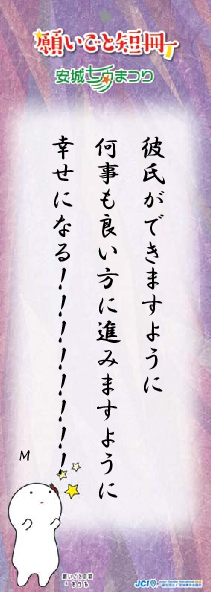 願いごと短冊
安城七夕まつり
彼氏ができますように
何事も良い方に進みますように
幸せになる!!!!!!!!!
M
JCI